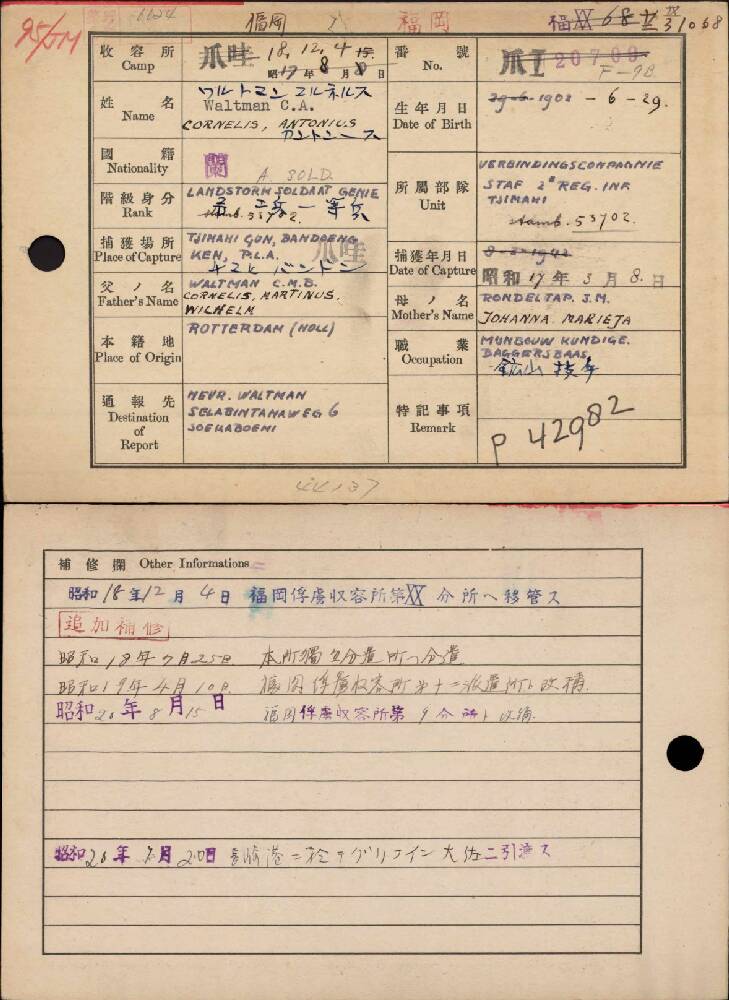 95/JM
6624
福岡
福岡
福 XX 68 V IX 31068
收容所 Camp 爪哇 18, 12, 4 15.
昭17年8月8日
番號 No. 爪I 20709
F-9B
姓名 Name ワルトマン コルネルス
Waltman C.A.
CORNELIS, ANTONIUS
アントニース
生年月日 Date of Birth 29-6-1902 - 6 - 29.
國籍 Nationality 蘭
A. SOLD.
階級身分 Rank LANDSTORM SOLDAAT GENIE
Stamb. 53702.
工兵一等兵
所屬部隊 Unit VERBINDINGSCOMPAGNIE
STAF 2e REG. INF.
TJIMAHI
Stamb. 53702.
捕獲場所 Place of Capture TJIMAHI GUN, BANDOENG
KEN, P.L.A. 爪哇
バンドン
捕獲年月日 Date of Capture 8-3-1942
昭和17年3月8.日
父ノ名 Father's Name WALTMAN C.M.B.
CORNELIS, MARTINUS.
WILHELM
母ノ名 Mother's Name RONDELTAP. J.M.
JOHANNA MARIEJA
本籍地 Place of Origin ROTTERDAM (HOLL)
職業 Occupation MIJNBOUW KUNDIGE.
BAGGERSBAAS
鉱山技手
通報先 Destination of Report MEVR. WALTMAN
SELABINTANAWEG 6
SOEKABOEMI
特記事項 Remark P 42982
44137
補修欄 Other Informations
昭和18年12月4日 福岡俘虜収容所第XX分所ヘ移管ス
追加補修
昭和18年9月25日 本所獨立分遣所ヘ分遣
昭和19年4月10日 福岡俘虜収容所第十二派遣所ト改稱.
昭和20年8月15日 福岡俘虜収容所第9分所ト改稱.
昭和20年 月20日 長崎港ニ於テグリフイン大佐ニ引渡ス